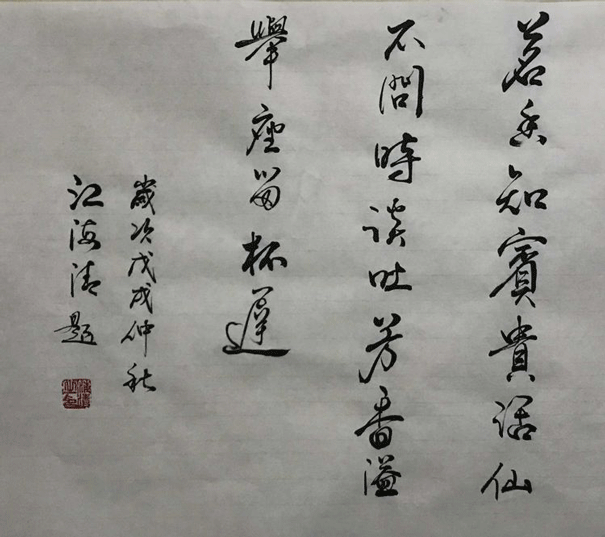 茗香知賓貴話仙
不問時談吐芳香溢
舉座留杯遲
歲次戊戌仲秋
江海清題